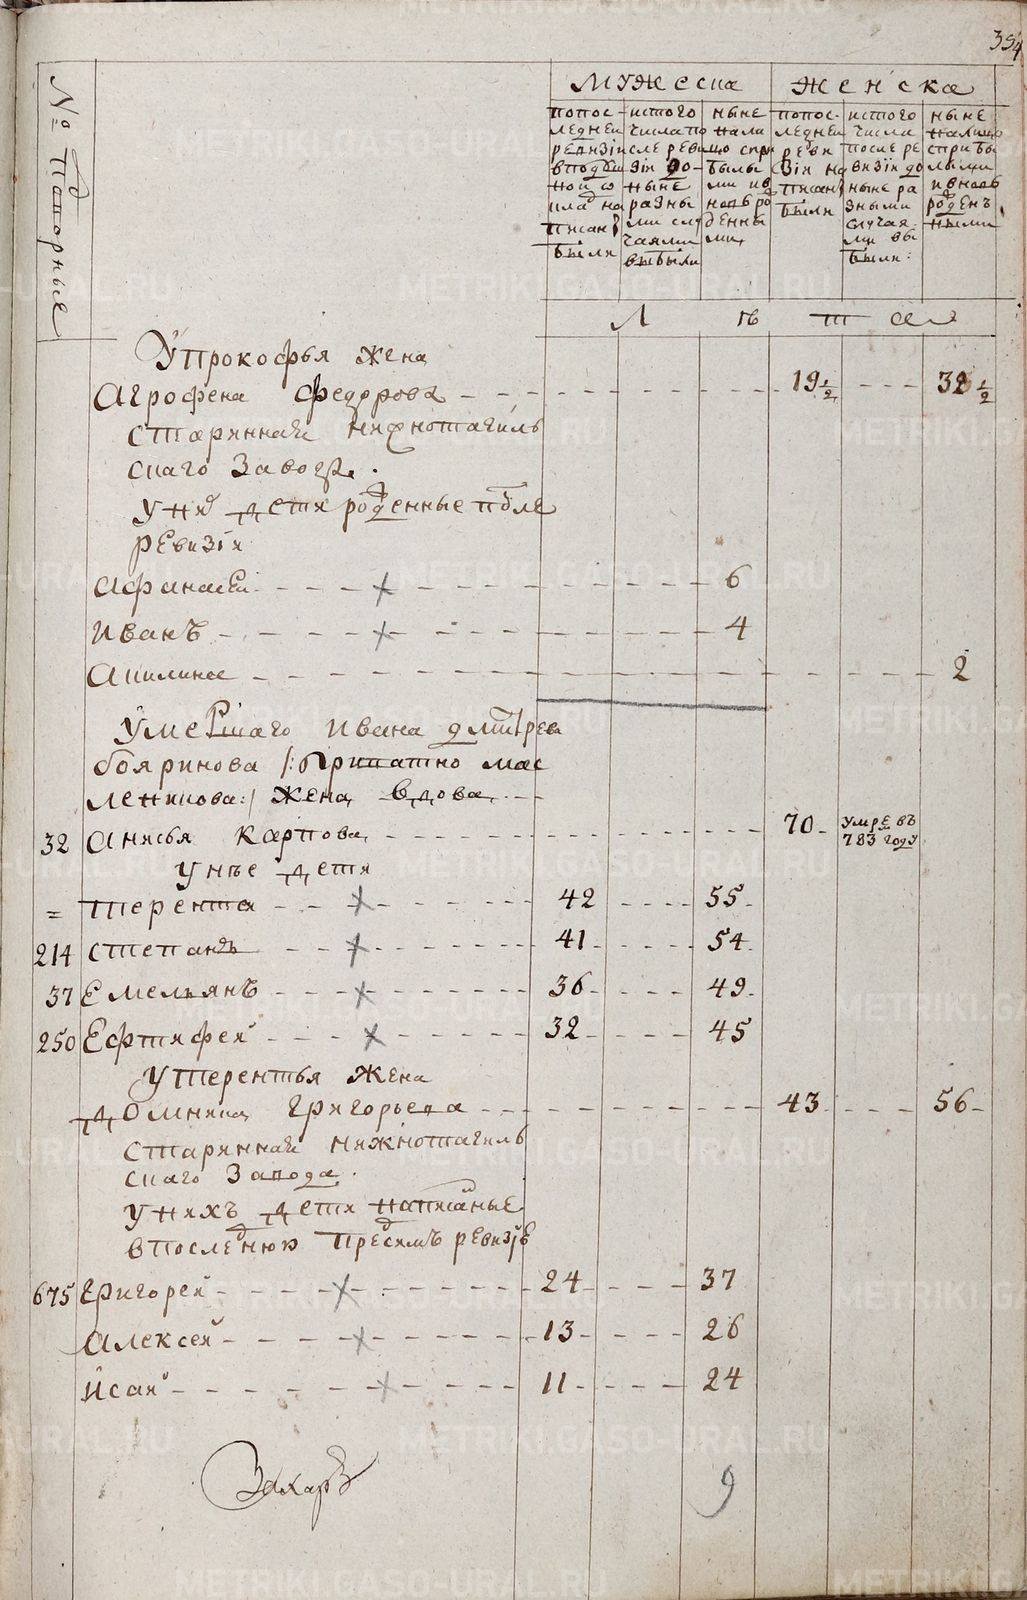 394
№ Подворные
Мужеска
Женска
попос-
ледней
ревизіи
написан
были
истого
числа по
сле реви
зіи до-
ныне
разны
ми слу
чаями
выбыли
ныне
нали
цо спри
былы
ми и в
новь ро
денны
ми
попос-
ледней
реви
зіи на
писан
были
истого
числа
после ре
визіи до
ныне ра
зными
случая
ми вы
были:
ныне
налицо
с прибы
лыми
и вновь
роденъ
ными
Л ѣ т а
У прокофья жена
Агрофена федорова 19 1/2 32 1/2
старинная нижнотагиль
скаго Завода.
у них дети роденные после
ревизіи
Афанасей 6
Иванъ 4
Акилина 2
Умершаго ивана дмитрева
бояринова /: припатно мас
леникова :/ жена вдова
32 Анисья карпова 70 умре въ
783 году
у нее дети
= терентеи 42 55
214 степанъ 41 54
37 Емельянъ 36 49
250 Ефтифей 32 45
У терентья жена
домника григорьева 43 56
старинная нижнотагиль
скаго Завода.
у нихъ дети написаные
в последнюю пред симъ ревизіе
675 григорей 24 37
Алексей 13 26
исай 11 24
Захаръ
9
METRIKI.GASO-URAL.RU